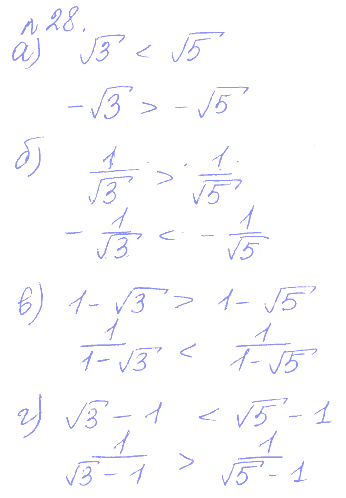 n 28.
а) √3 < √5
-√3 > -√5
б) 1/√3 > 1/√5
-1/√3 < -1/√5
в) 1-√3 > 1-√5
1/(1-√3) < 1/(1-√5)
г) √3-1 < √5-1
1/(√3-1) > 1/(√5-1)